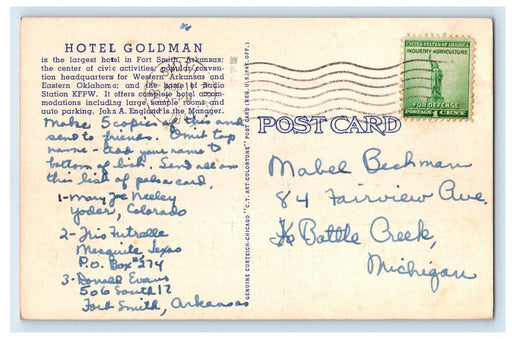 HOTEL GOLDMAN
is the largest hotel in Fort Smith, Arkansas;
the center of civic activities; popular conven-
tion headquarters for Western Arkansas and
Eastern Oklahoma; and the home of Radio
Station KFPW. It offers complete hotel accom-
modations including large sample rooms and
auto parking. John A. England is the Manager.
Make 5 copies of this and
send to friends. Omit top
name - add your name to
bottom of list. Send all on
this list of a card.
1- Mary Joe Neeley
Yoder, Colorado
2-
Mesquite, Texas
P.O. Box 274
3- Donald Evans
506 South 17
Fort Smith, Arkansas
GENUINE CURTEICH-CHICAGO "C.T. ART-COLORTONE" POST CARD (REG. U.S. PAT. OFF.)
UNITED STATES OF AMERICA
INDUSTRY-AGRICULTURE
FOR DEFENSE
POSTAGE 1 CENT
POST CARD
Mabel Beckman
84 Fairview Ave.
Battle Creek,
Michigan